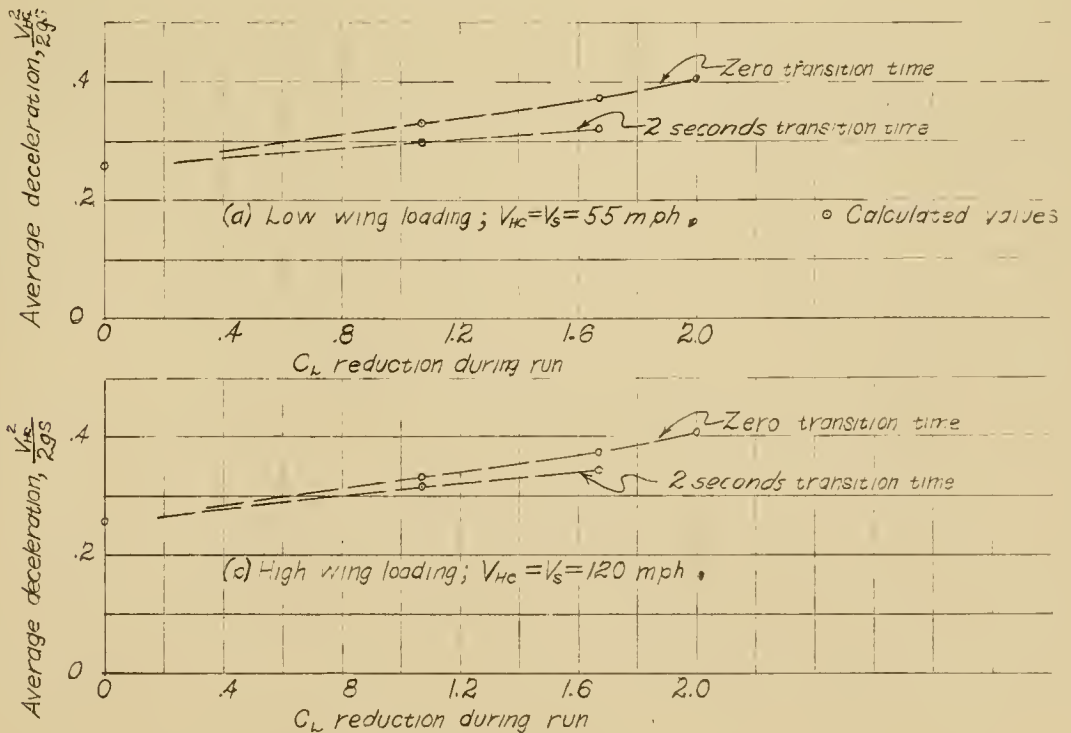 Average deceleration, V_HC²/2gs
.4
.2
0
Zero transition time
2 seconds transition time
(a) Low wing loading; V_HC=V_S=55 mph.
o Calculated values
0 .4 .8 1.2 1.6 2.0
C_L reduction during run
Average deceleration, V_HC²/2gs
.4
.2
0
Zero transition time
2 seconds transition time
(c) High wing loading; V_HC=V_S=120 mph.
0 .4 .8 1.2 1.6 2.0
C_L reduction during run